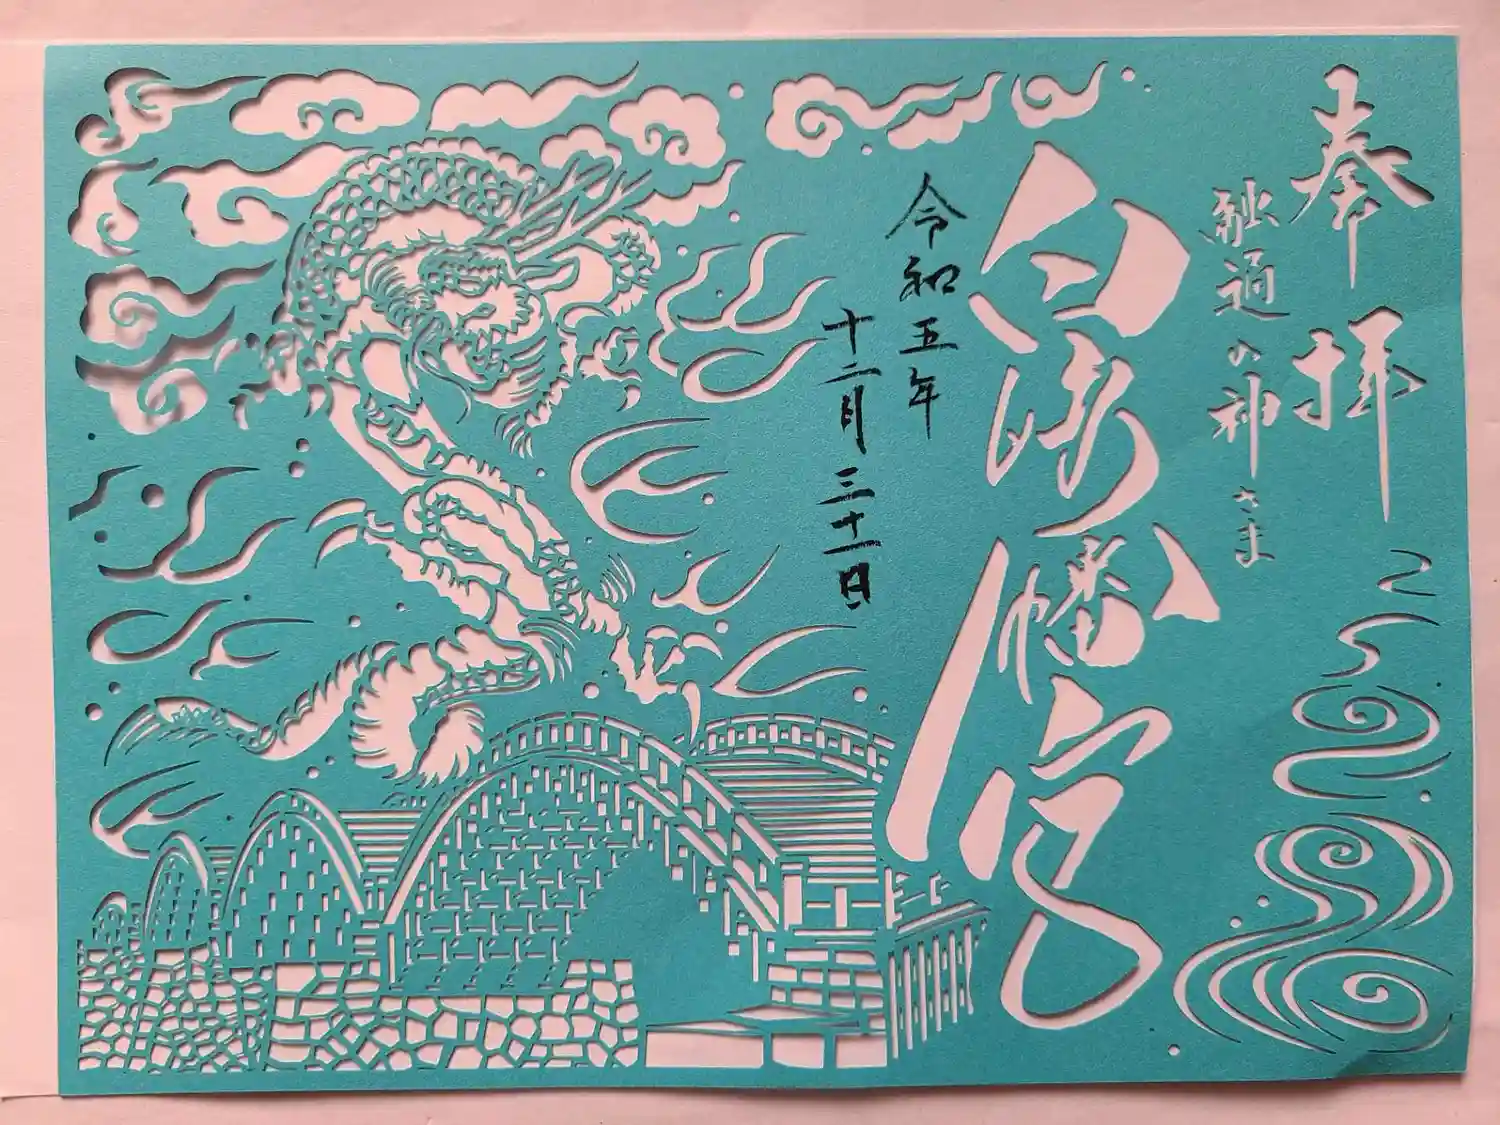 奉拝
融通の神さま
白崎八幡宮
令和五年
十二月三十一日